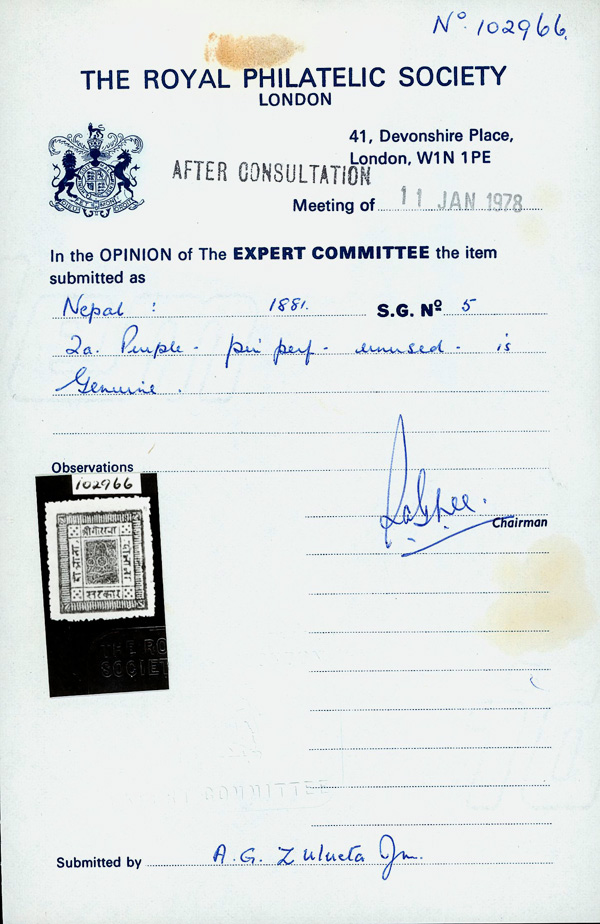 Nº 102966.
THE ROYAL PHILATELIC SOCIETY
LONDON
41, Devonshire Place,
London, W1N 1PE
AFTER CONSULTATION
Meeting of 11 JAN 1978
In the OPINION of The EXPERT COMMITTEE the item
submitted as
Nepal : 1881. S.G. Nº 5
2a. Purple - pin perf - unused - is
Genuine.
Observations
102966
Chairman
श्री गोरखा
सरकार
THE RO
SOCIET
COMMITTEE
Submitted by A. G. Zulueta Jr.